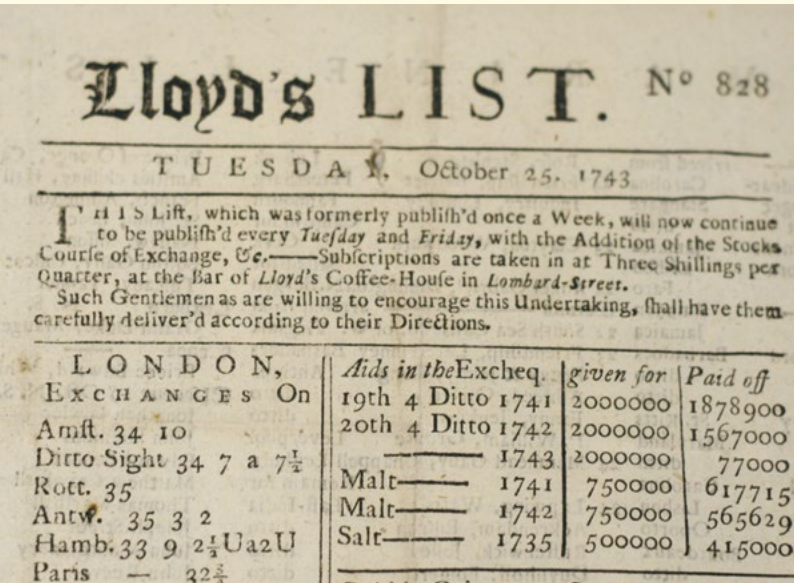 Lloyd's LIST. Nº 828
TUESDAY, October 25. 1743
THIS Liſt, which was formerly publiſh'd once a Week, will now continue
to be publiſh'd every Tueſday and Friday, with the Addition of the Stocks
Courſe of Exchange, &c.——Subſcriptions are taken in at Three Shillings per
Quarter, at the Bar of Lloyd's Coffee-Houſe in Lombard-Street.
Such Gentlemen as are willing to encourage this Undertaking, ſhall have them
carefully deliver'd according to their Directions.
LONDON,
EXCHANGES On
Amſt. 34 10
Ditto Sight 34 7 a 7½
Rott. 35
Antw. 35 3 2
Hamb. 33 9 2½Ua2U
Paris — 32⅜
Aids in the Excheq. given for Paid off
19th 4 Ditto 1741 2000000 1878900
20th 4 Ditto 1742 2000000 1567000
—— 1743 2000000 77000
Malt—— 1741 750000 617715
Malt—— 1742 750000 565629
Salt—— 1735 500000 415000